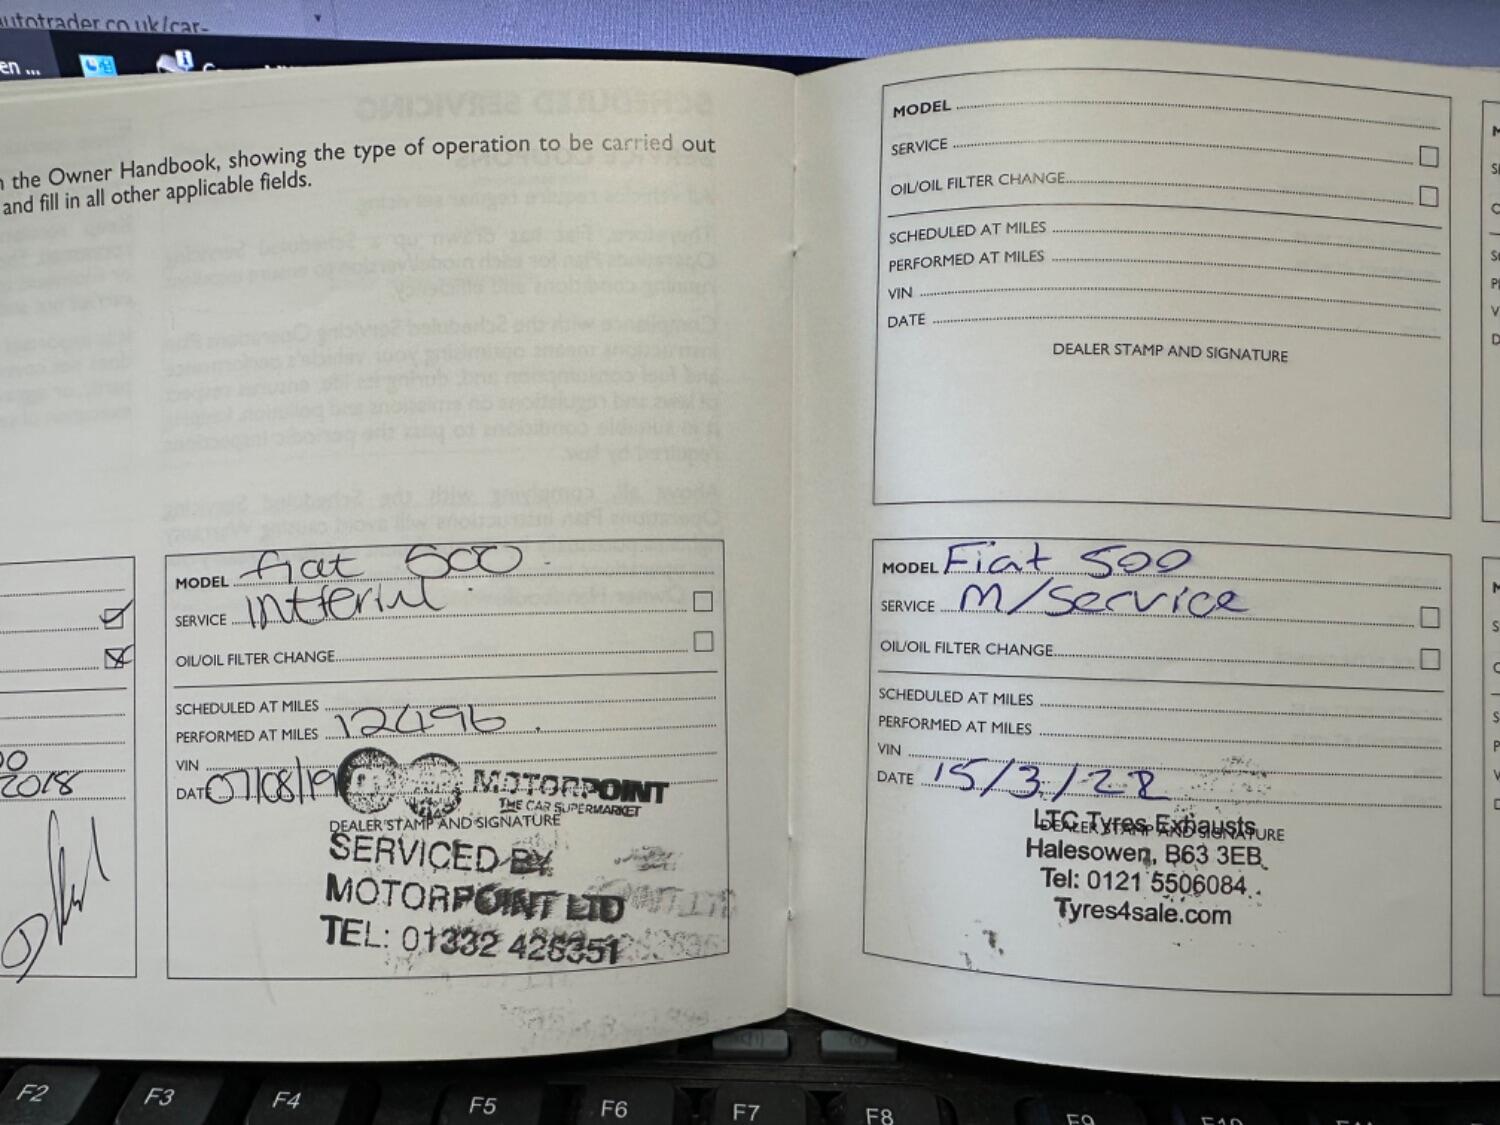 autotrader.co.uk/car-
en ...
n the Owner Handbook, showing the type of operation to be carried out
and fill in all other applicable fields.
2018
MODEL fiat 500
SERVICE Intterim
OIL/OIL FILTER CHANGE
SCHEDULED AT MILES
PERFORMED AT MILES 12496
VIN
DATE 07/08/19
MOTORPOINT
THE CAR SUPERMARKET
DEALER STAMP AND SIGNATURE
SERVICED BY
MOTORPOINT LTD
TEL: 01332 426351
MODEL
SERVICE
OIL/OIL FILTER CHANGE
SCHEDULED AT MILES
PERFORMED AT MILES
VIN
DATE
DEALER STAMP AND SIGNATURE
MODEL Fiat 500
SERVICE M/Service
OIL/OIL FILTER CHANGE
SCHEDULED AT MILES
PERFORMED AT MILES
VIN
DATE 15/3/22
LTC Tyres Exhausts
DEALER STAMP AND SIGNATURE
Halesowen, B63 3EB
Tel: 0121 5506084
Tyres4sale.com
F2 F3 F4 F5 F6 F7 F8 F9 F10